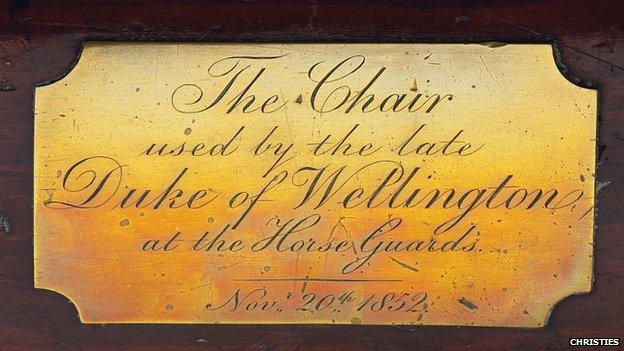 The Chair
used by the late
Duke of Wellington,
at the Horse Guards.
Nov.r 20th. 1852.
CHRISTIES